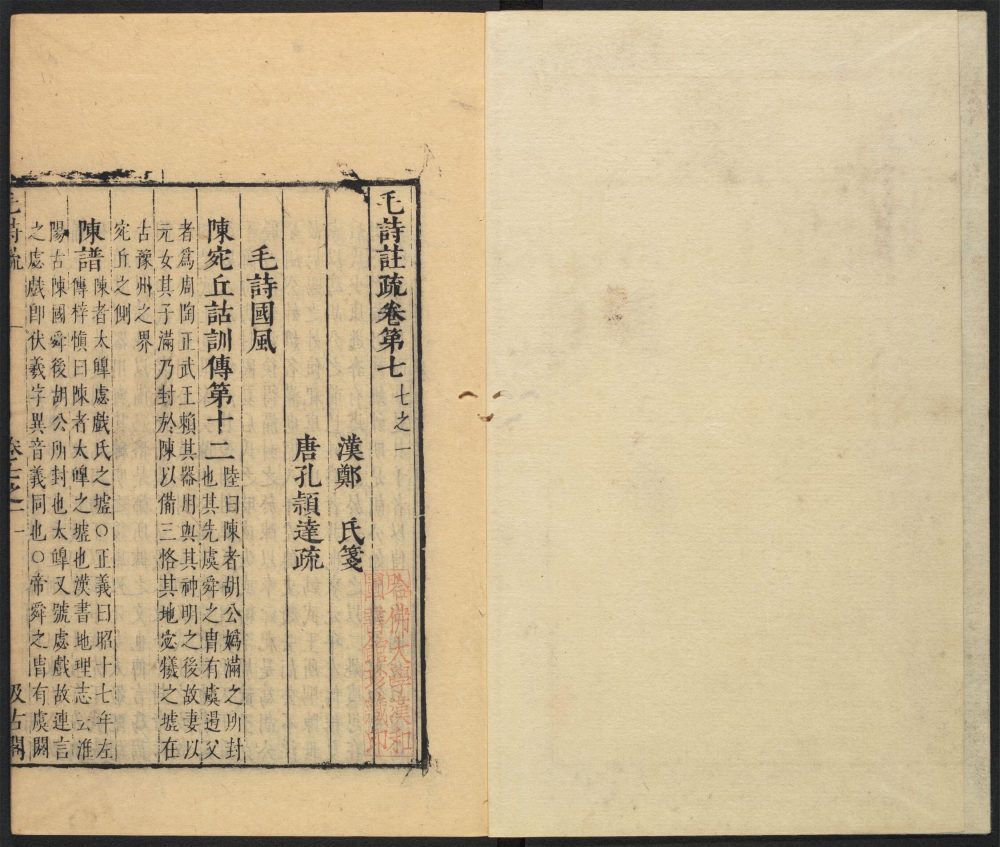 毛詩註疏卷第七 七之一
漢鄭 氏箋
唐孔穎達疏
毛詩國風
陳宛丘詁訓傳第十二
陸曰陳者胡公媯滿之所封
也其先虞舜之胄有虞遏父
者爲周陶正武王賴其器用與其神明之後故妻以
元女其子滿乃封於陳以備三恪其地宓犧之墟在
古豫州之界
宛丘之側
陳譜
陳者太皥虙戲氏之墟○正義曰昭十七年左
傳梓愼曰陳者大皥之墟也漢書地理志云淮
陽古陳國舜後胡公所封也太皥又號虙戲故連言
之虙戲卽伏羲字異音義同也○帝舜之胄有虞閼
毛詩疏
卷七之一
一
汲古閣
哈佛大學漢和
圖書館珍藏印